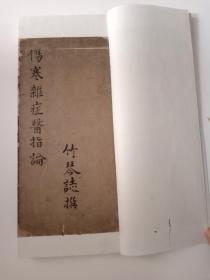 傷寒雜症醫指論
竹琴誌撰